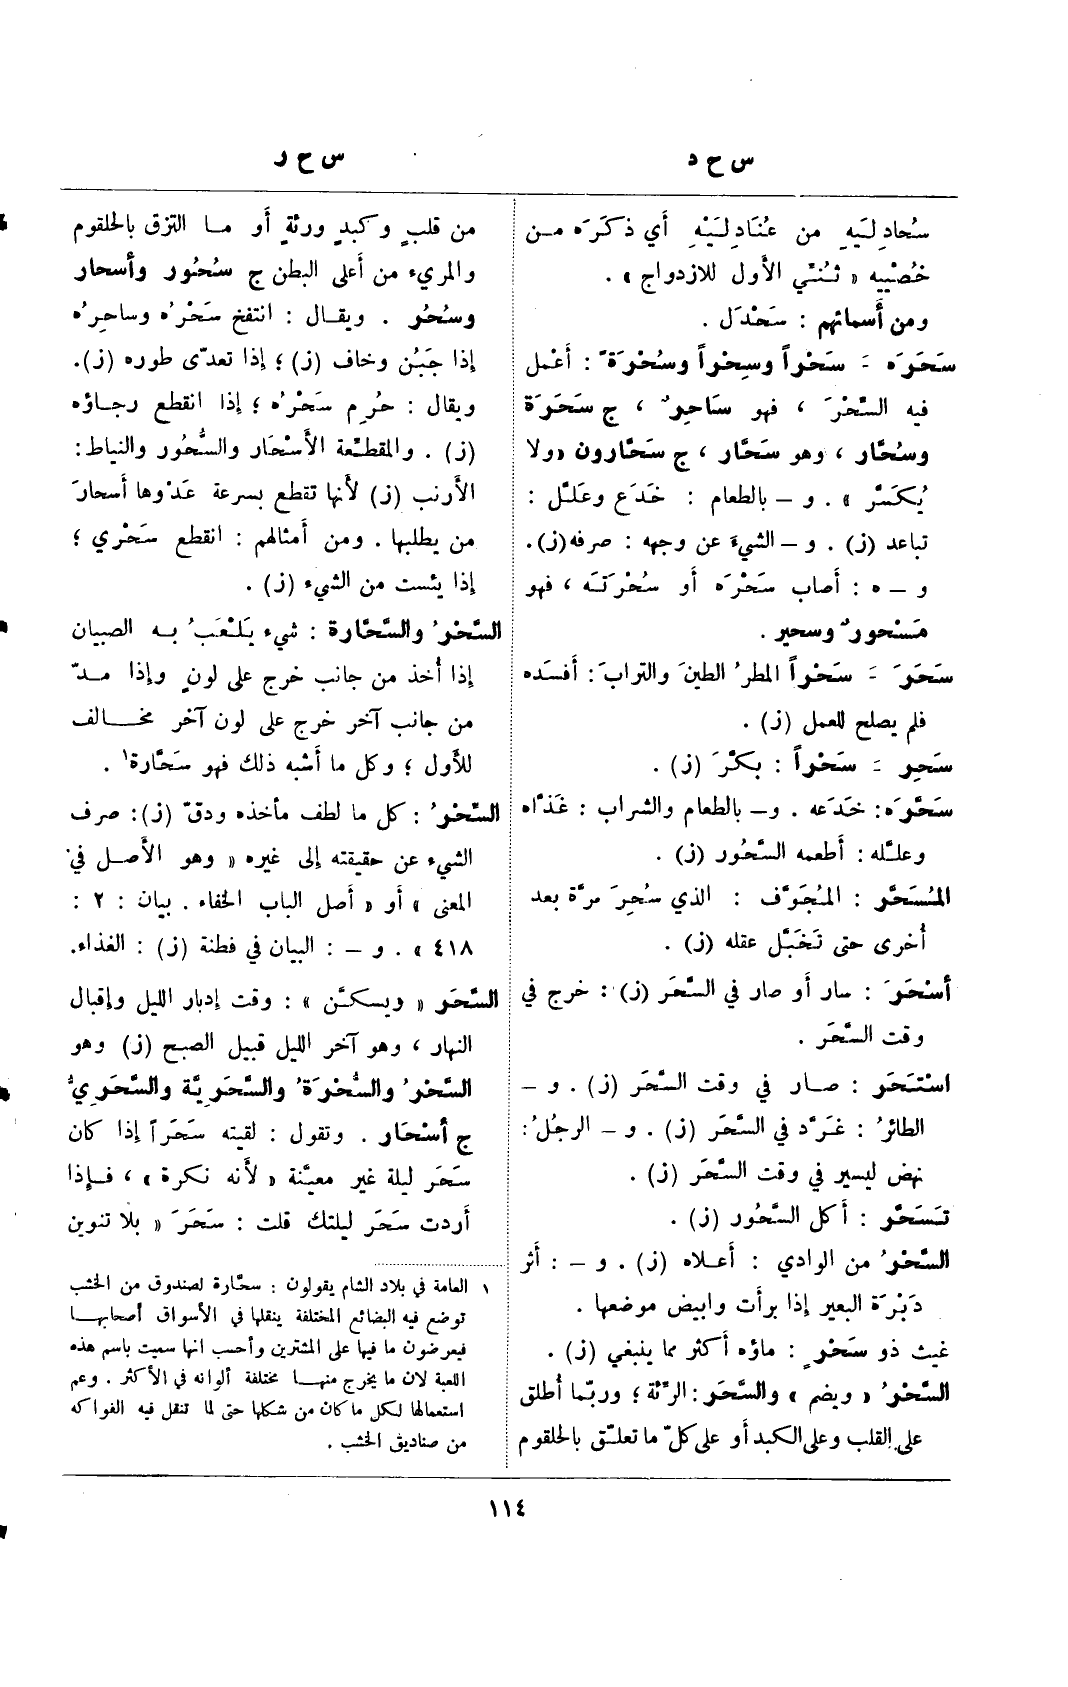 س ح د
س ح ر
سُحادِلَيَهِ من عُنَادِلَيْهِ أي ذكَرَه من
خُصْيَيه « ثُنّي الأول للازدواج » .
ومن أسمائهم : سَحْدَل .
سَحَرَه ـَ سَحْراً وسِحْراً وسُحْرَةً : أعْمل
فيه السِّحْرَ ، فهو سَاحِرٌ ، ج سَحَرَة
وسُحَّار ، وهو سَحَّار ، ج سَحَّارون «ولا
يُكَسَّر » . و ــ بالطعام : خَدَع وعَلَّل :
تباعد (ز) . و ــ الشيءَ عن وجهه : صرفه(ز).
و ــ ه : أصاب سَحْرَه أو سُحْرَتَه ، فهو
مَسْحورٌ وسحير .
سَحَرَ ـَ سَحْراً المطرُ الطينَ والترابَ : أفسَده
فلم يصلح للعمل (ز) .
سَحِر ـَ سَحْراً : بكَّرَ (ز) .
سَحَّرَه : خدَعه . و ــ بالطعام والشراب : غَذَّاه
وعلَّله : أطعمه السَّحُور (ز) .
المُسَحَّر : المُجَوَّف : الذي سُحِرَ مرّة بعد
أُخرى حتى تَخَبَّل عقله (ز) .
أسْحَرَ : سار أو صار في السَّحَر (ز) : خرج في
وقت السَّحَر .
اسْتَحَر : صار في وقت السَّحَر (ز) . و ــ
الطائرُ : غَرَّد في السَّحَر (ز) . و ــ الرجُلُ :
نهض ليسير في وقت السَّحَر (ز) .
تَسَحَّر : أكل السَّحُور (ز) .
السَّحْرُ من الوادي : أعلاه (ز) . و ــ : أثر
دَبْرَة البعير إذا برأت وابيض موضعها .
غيث ذو سَحْرٍ : ماؤه أكثر مما ينبغي (ز) .
السَّحْرُ « ويضم » والسَّحَر : الرّئة ؛ وربّما أُطلق
على القلب وعلى الكبد أو على كلّ ما تعلّق بالحلقوم
من قلبٍ وكبدٍ ورئةٍ أو ما التزق بالحلقوم
والمريء من أعلى البطن ج سُحُور وأسحار
وسُحُر . ويقال : انتفخ سَحْرُه وساحِرُه
إذا جَبُن وخاف (ز) ؛ إذا تعدّى طوره (ز).
ويقال : صُرِم سَحْرُه ؛ إذا انقطع رجاؤه
(ز) . والمقطّعة الأسْحَار والسُّحُور والنياط :
الأرنب (ز) لأنها تقطع بسرعة عَدْوها أسحارَ
من يطلبها . ومن أمثالهم : انقطع سَحْري ؛
إذا يئست من الشيء (ز) .
السَّحْرُ والسَّحَّارة : شيء يَلْعَبُ به الصبيان
إذا أُخذ من جانب خرج على لونٍ وإذا مدّ
من جانب آخر خرج على لون آخر مخالف
للأول ؛ وكل ما أشبه ذلك فهو سَحَّارة١ .
السِّحْرُ : كل ما لطف مأخذه ودقّ (ز): صرف
الشيء عن حقيقته إلى غيره « وهو الأصل في
المعنى » أو « أصل الباب الخفاء . بيان : ٢ :
٤١٨ » . و ــ : البيان في فطنة (ز) : الغذاء.
السَّحَر « ويسكّن » : وقت إدبار الليل وإقبال
النهار ، وهو آخر الليل قبيل الصبح (ز) وهو
السَّحْرُ والسُّحْرَةُ والسَّحَرِيَّة والسَّحَرِيُّ
ج أسْحَار . وتقول : لقيته سَحَراً إذا كان
سَحَر ليلة غير معيَّنة « لأنه نكرة » ، فإذا
أردت سَحَر ليلتك قلت : سَحَرَ « بلا تنوين
١ العامة في بلاد الشام يقولون : سحّارة لصندوق من الخشب
توضع فيه البضائع المختلفة ينقلها في الأسواق أصحابها
فيعرضون ما فيها على المشترين وأحسب انها سميت باسم هذه
اللعبة لان ما يخرج منها مختلفة ألوانه في الأكثر . وعم
استعمالها لكل ما كان من شكلها حتى لما تنقل فيه الفواكه
من صناديق الخشب .
١١٤